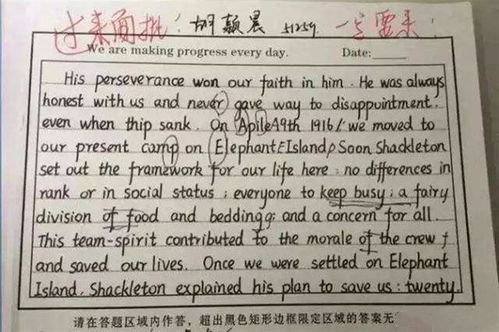 过来面批! 胡颖晨 51259 一定要来!
We are making progress every day. Date:
His perseverance won our faith in him. He was always
honest with us and never gave way to disappointment,
even when thip sank. On Aplie 19th 1916, we moved to
our present camp on Elephant Island. Soon Shackleton
set out the framework for our life here: no differences in
rank or in social status; everyone to keep busy; a fairy
division of food and bedding; and a concern for all.
This team-spirit contributed to the morale of the crew
and saved our lives. Once we were settled on Elephant
Island, Shackleton explained his plan to save us: twenty
请在答题区域内作答，超出黑色矩形边框限定区域的答案无